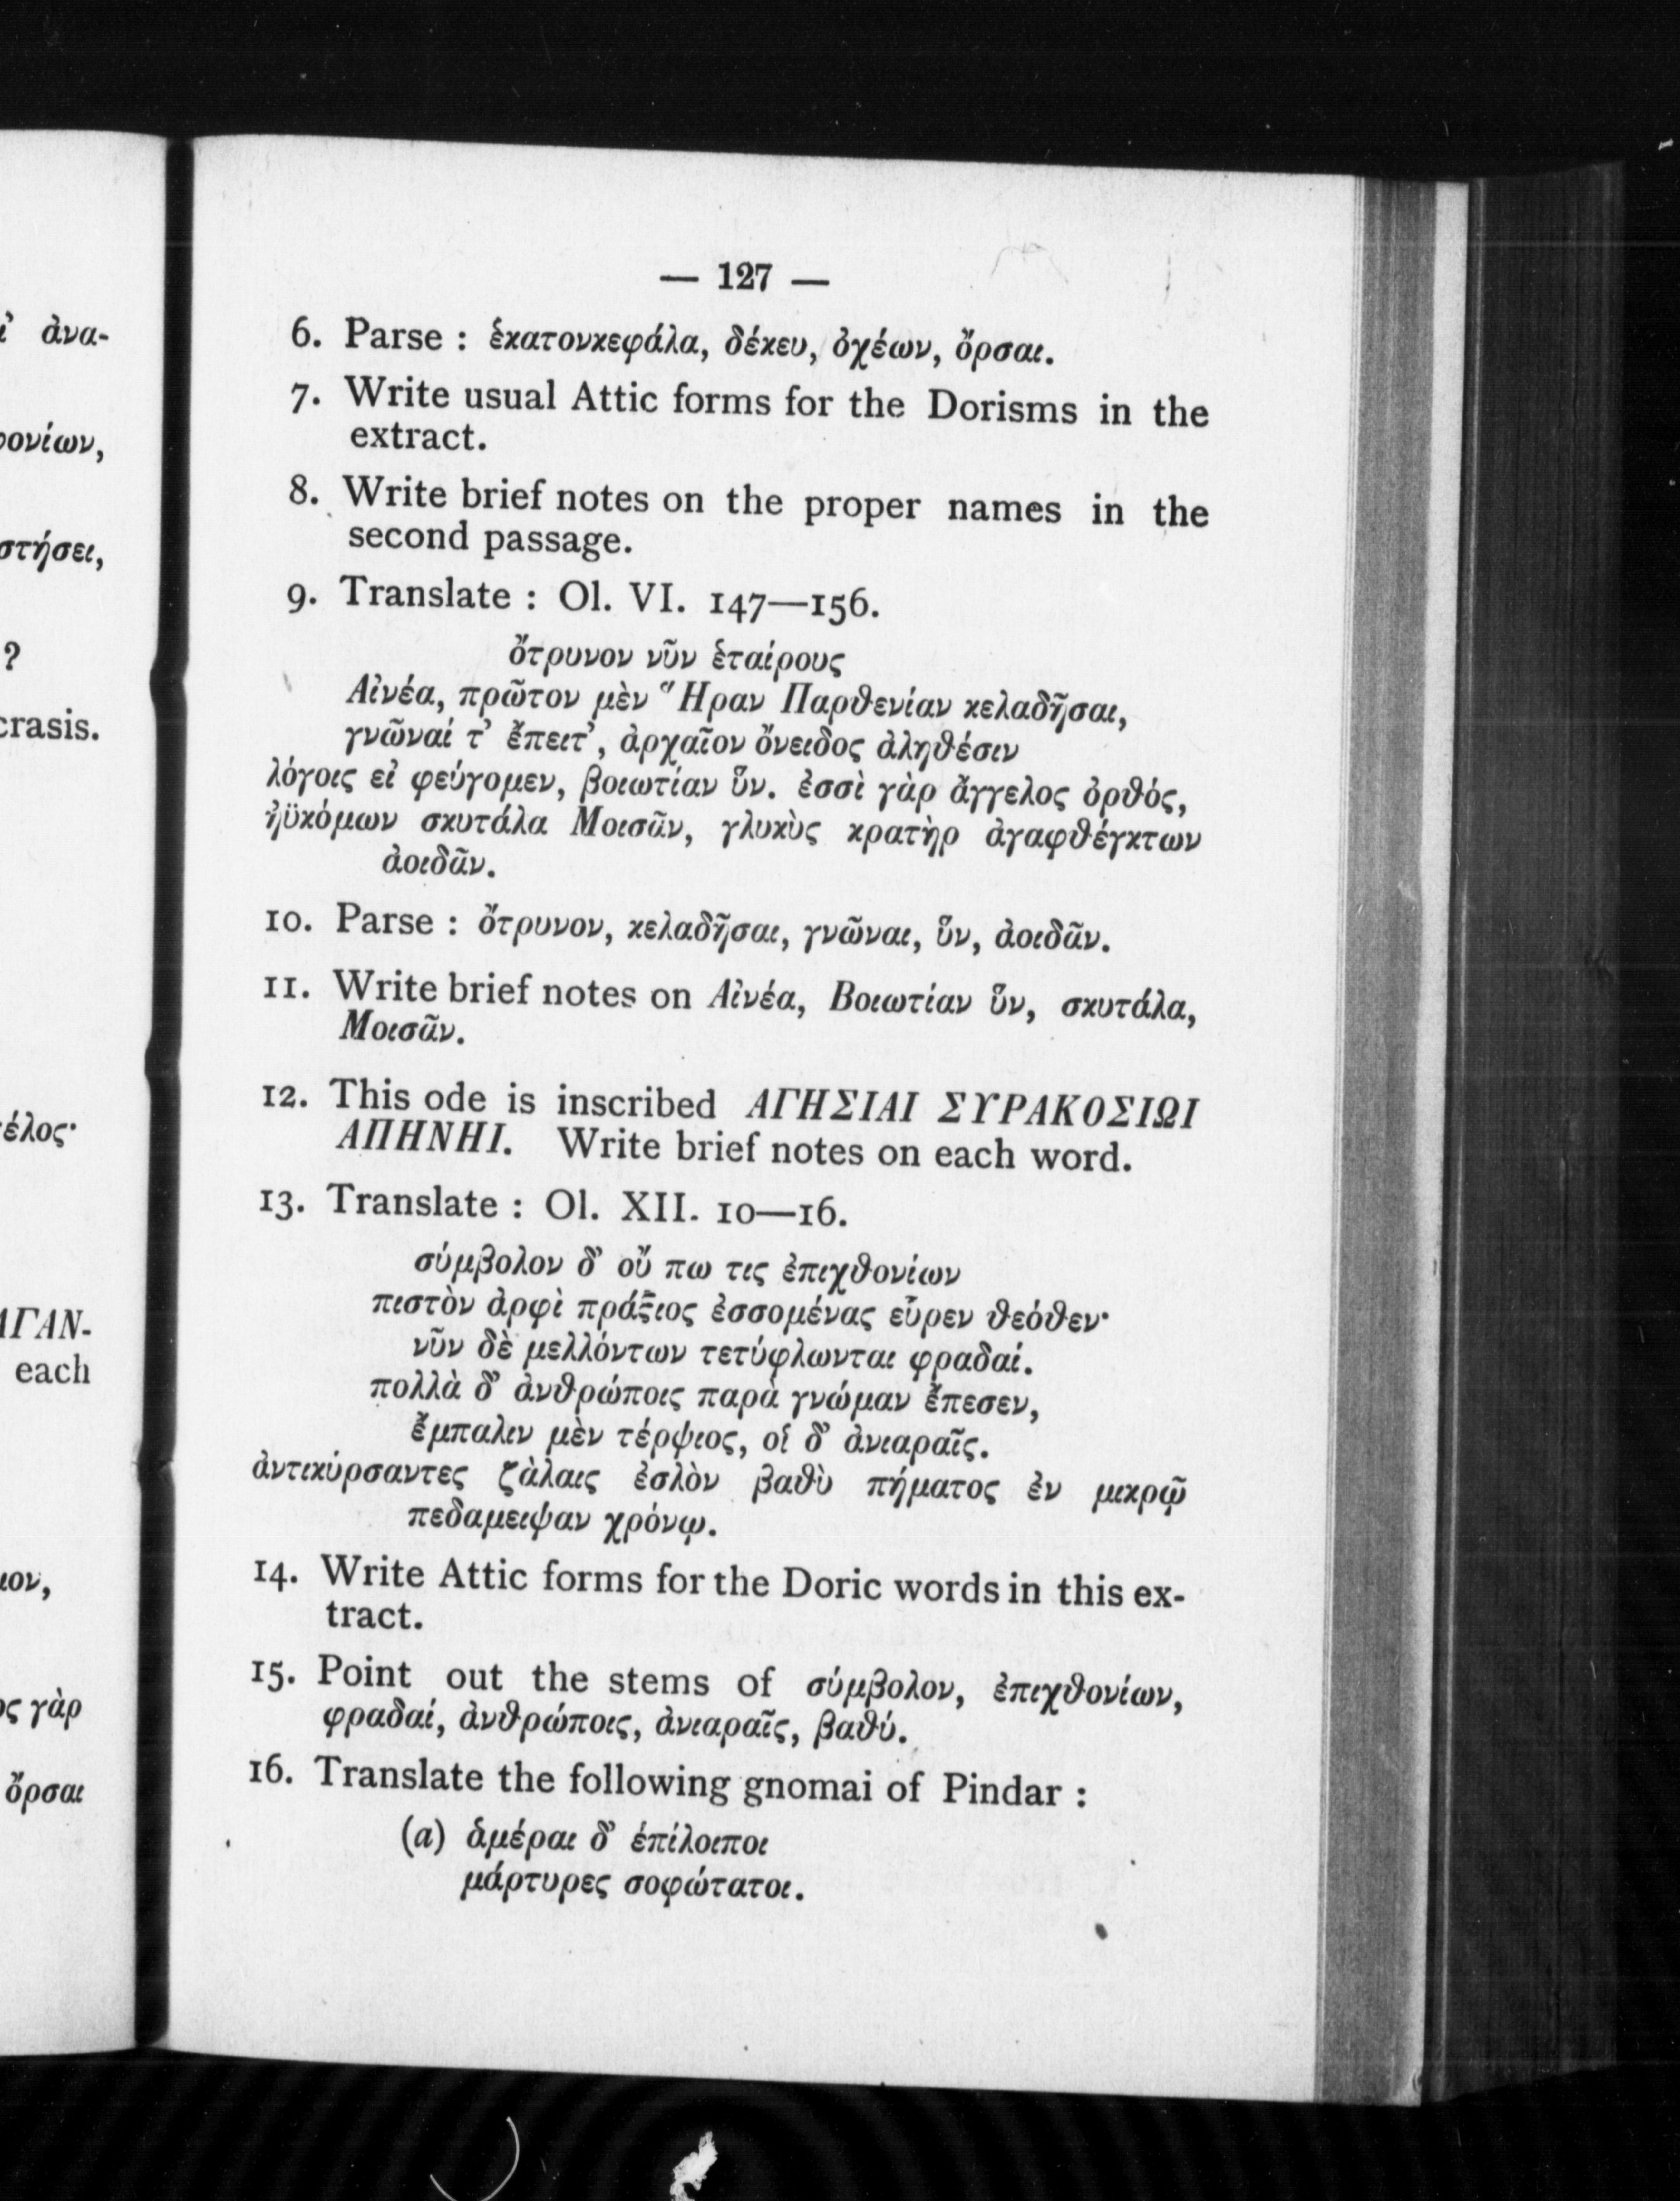 ἀνα-
ονίων,
στήσει,
?
crasis.
έλος·
ΑΓΑΝ-
each
ιον,
ος γὰρ
ὄρσαι
— 127 —
6. Parse : ἑκατονκεφάλα, δέκευ, ὀχέων, ὄρσαι.
7. Write usual Attic forms for the Dorisms in the
extract.
8. Write brief notes on the proper names in the
second passage.
9. Translate : Ol. VI. 147—156.
ὄτρυνον νῦν ἑταίρους
Αἰνέα, πρῶτον μὲν Ἥραν Παρθενίαν κελαδῆσαι,
γνῶναί τ’ ἔπειτ’, ἀρχαῖον ὄνειδος ἀληθέσιν
λόγοις εἰ φεύγομεν, βοιωτίαν ὗν. ἐσσὶ γὰρ ἄγγελος ὀρθός,
ἠϋκόμων σκυτάλα Μοισᾶν, γλυκὺς κρατὴρ ἀγαφθέγκτων
ἀοιδᾶν.
10. Parse : ὄτρυνον, κελαδῆσαι, γνῶναι, ὗν, ἀοιδᾶν.
11. Write brief notes on Αἰνέα, Βοιωτίαν ὗν, σκυτάλα,
Μοισᾶν.
12. This ode is inscribed ΑΓΗΣΙΑΙ ΣΥΡΑΚΟΣΙΩΙ
ΑΠΗΝΗΙ. Write brief notes on each word.
13. Translate : Ol. XII. 10—16.
σύμβολον δ’ οὔ πω τις ἐπιχθονίων
πιστὸν ἀρφὶ πράξιος ἐσσομένας εὗρεν θεόθεν·
νῦν δὲ μελλόντων τετύφλωνται φραδαί.
πολλὰ δ’ ἀνθρώποις παρὰ γνώμαν ἔπεσεν,
ἔμπαλιν μὲν τέρψιος, οἱ δ’ ἀνιαραῖς.
ἀντικύρσαντες ζὰλαις ἐσλὸν βαθὺ πήματος ἐν μικρῷ
πεδαμειψαν χρόνῳ.
14. Write Attic forms for the Doric words in this ex-
tract.
15. Point out the stems of σύμβολον, ἐπιχθονίων,
φραδαί, ἀνθρώποις, ἀνιαραῖς, βαθύ.
16. Translate the following gnomai of Pindar :
(a) ἁμέραι δ’ ἐπίλοιποι
μάρτυρες σοφώτατοι.